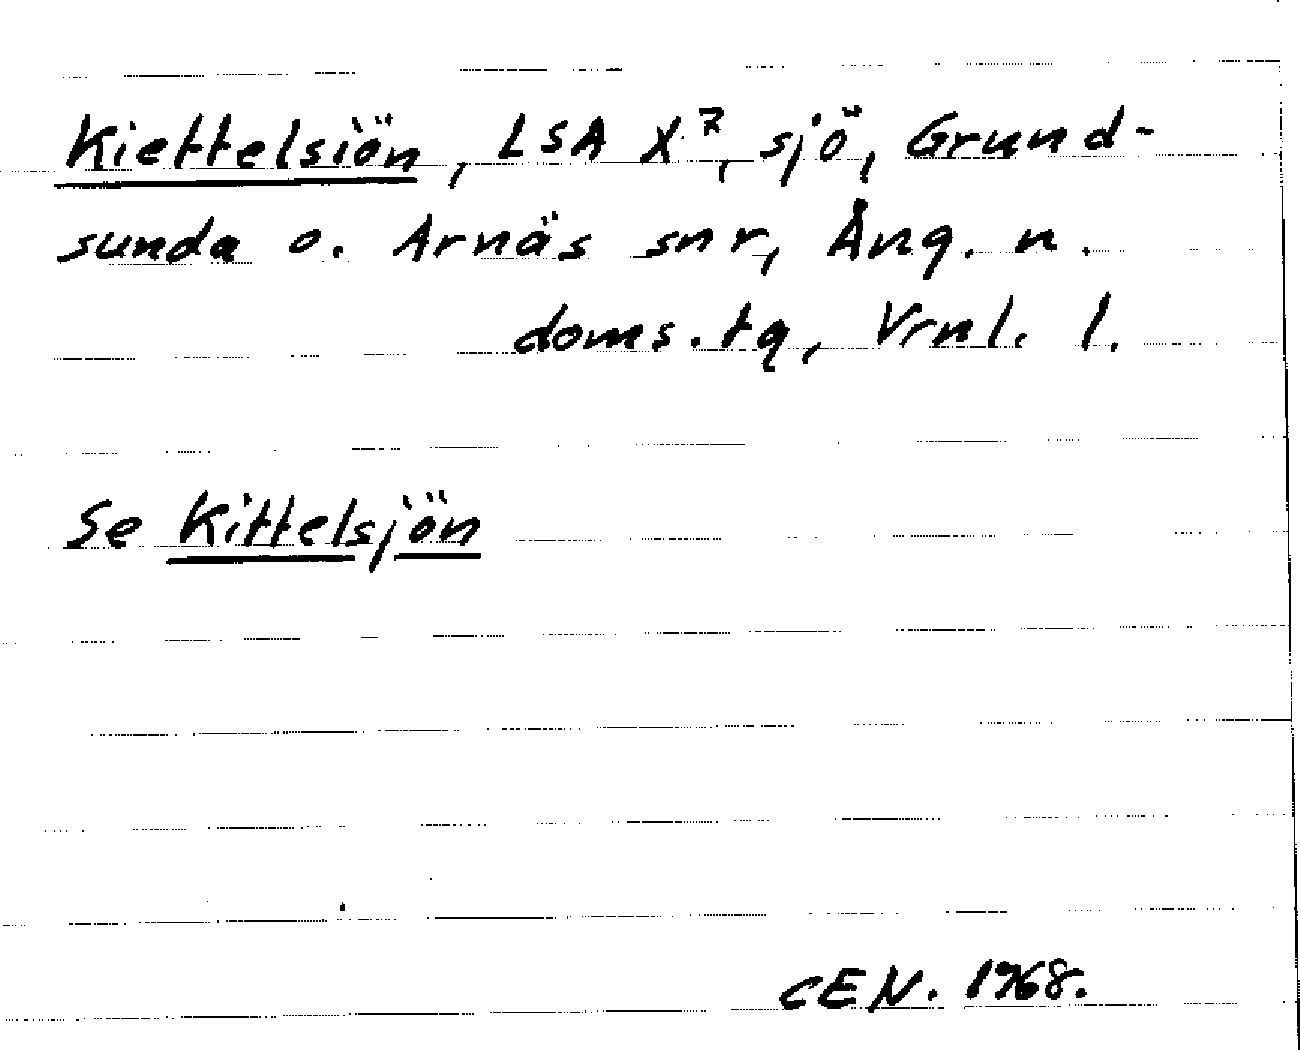 Kiettelsiön, LSA X7, sjö, Grund-
sunda o. Arnäs snr, Ång. n.
doms.tg, Vrnl. l.
Se Kittelsjön
CEN. 1968.